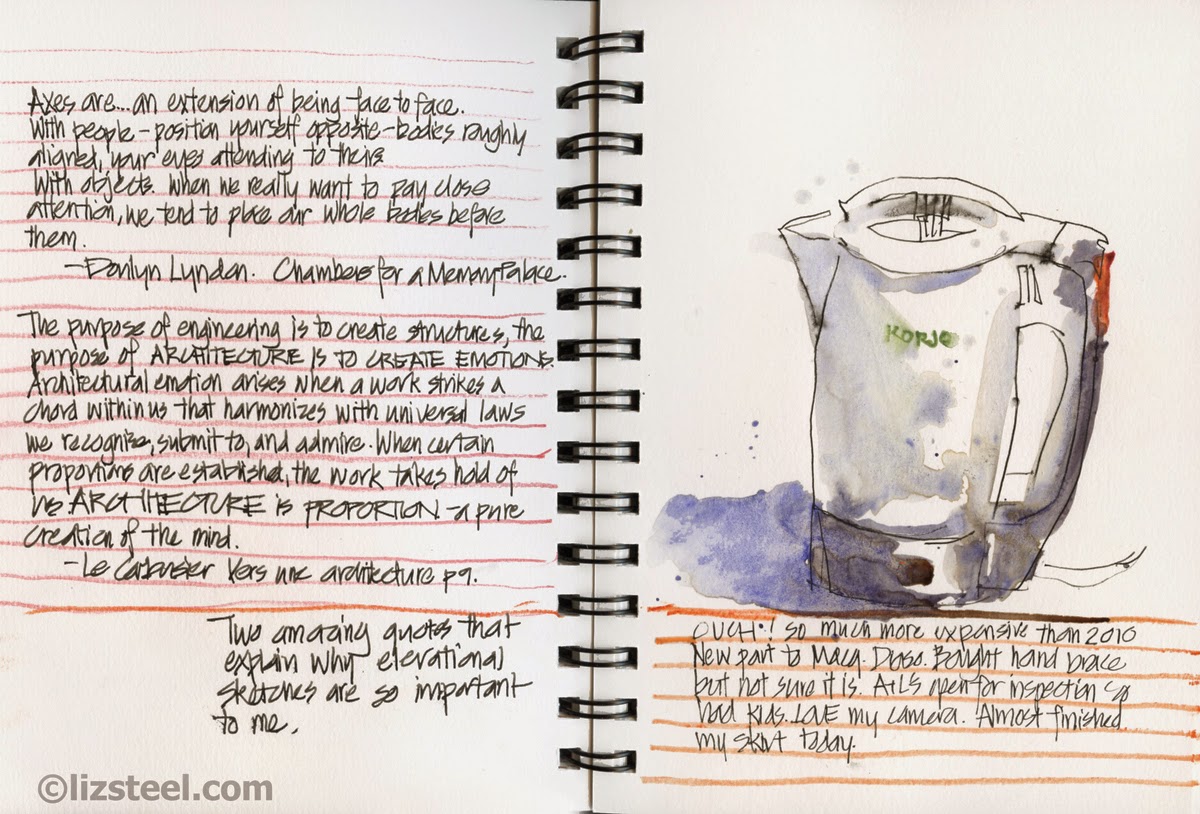 Axes are... an extension of being face to face.
With people - position yourself opposite - bodies roughly
aligned, your eyes attending to theirs
With objects. When we really want to pay close
attention, we tend to place our whole bodies before
them.
- Donlyn Lyndon. Chambers for a Memory Palace.
The purpose of engineering is to create structures, the
purpose of ARCHITECTURE IS TO CREATE EMOTIONS.
Architectural emotion arises when a work strikes a
chord within us that harmonizes with universal laws
we recognise, submit to, and admire. When certain
proportions are established, the work takes hold of
us ARCHITECTURE is PROPORTION - a pure
creation of the mind.
- Le Corbusier Vers une architecture p9.
Two amazing quotes that
explain why elevational
sketches are so important
to me.
©lizsteel.com
KORJO
OUCH! so much more expensive than 2010
New part to Macq. Bought hand brace
but not sure it is. open for inspection so
had kids. LOVE my camera. Almost finished
my skirt today.